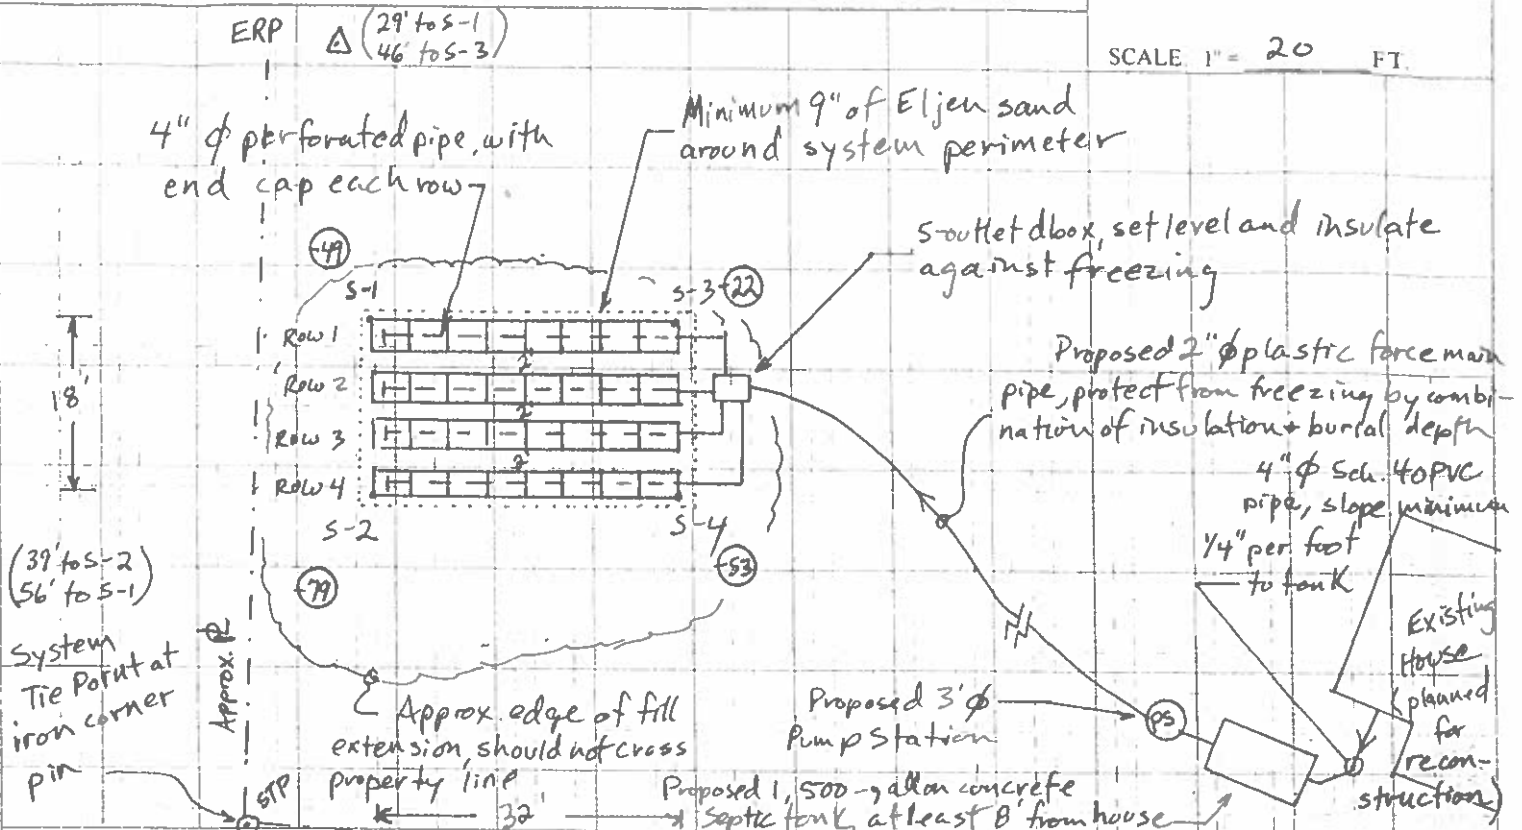 ERP
(29' to S-1
46' to S-3)
SCALE 1" = 20 FT.
4" ϕ perforated pipe, with
end cap each row
Minimum 9" of Eljen sand
around system perimeter
5-outlet dbox, set level and insulate
against freezing
-49
S-1
S-3
-22
Row 1
2'
Row 2
2'
Row 3
2'
Row 4
18'
S-2
S-4
-53
-79
Proposed 2" ϕ plastic force main
pipe, protect from freezing by combi-
nation of insulation + burial depth
4" ϕ Sch. 40 PVC
pipe, slope minimum
1/4" per foot
to tank
(39' to S-2
56' to S-1)
System
Tie Point at
iron corner
pin
Approx. PL
STP
Approx. edge of fill
extension, should not cross
property line
32'
Proposed 3' ϕ
Pump Station
PS
Proposed 1,500-gallon concrete
septic tank, at least 8' from house
Existing
House
(planned
for
recon-
struction)